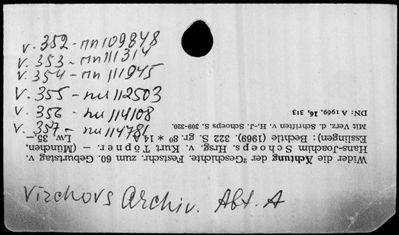 v. 352 - пп109848
v. 353 - пп111314
v. 354 - пп111945
v. 355 - пи112503
v. 356 - пи114108
v. 357 - пи114781
Virchovs Archiv. Abt. A
Wider die Ächtung der Geschichte. Festschr. zum 60. Geburtstag v.
Hans-Joachim Schoeps. Hrsg. v. Kurt Töpner. - (München,
Esslingen): Bechtle (1969). 322 S. gr. 8° * 14 A Lw. 35.-
Mit Verz. d. Schriften v. H.-J. Schoeps S. 309-320.
DN: A 1969, 16, 313